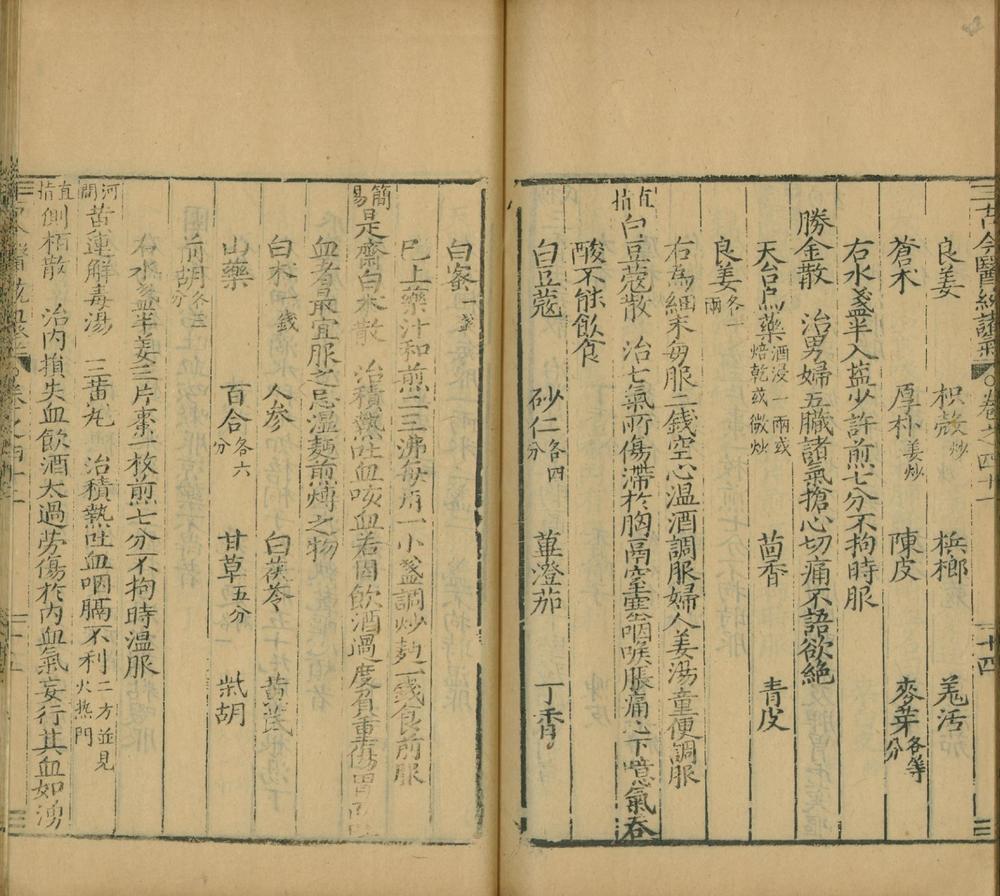 古今醫統諸氣 卷之四十一 二十四
良姜 枳殼炒 梹榔 羗活
蒼术 厚朴姜炒 陳皮 麥芽各等分
右水盞半入盐少許煎七分不拘時服
勝金散 治男婦五臟諸氣搶心切痛不語欲絶
天台烏藥酒浸一兩或焙乾或微炒 茴香 青皮
良姜各一兩
右為細末每服二錢空心温酒調服婦人姜湯童便調服
直指白豆蔻散 治七氣所傷滯於胸膈窒塞咽喉脹痛心下噫氣吞
酸不能飲食
白豆蔻 砂仁各四分 蓽澄茄 丁香
白蜜一盞
已上藥汁和煎二三沸每用一小盞調炒麪一錢食前服
簡易是齋白术散 治積熱吐血咳血若因飲酒過度負重傷胃而吐
血者最宜服之忌湿麵煎煿之物
白术二錢 人參 白茯苓 黄芪
山藥 百合各六分 甘草五分 柴胡
前胡各三分
右水盞半姜三片棗一枚煎七分不拘時温服
河間黄連解毒湯 三黄丸 治積熱吐血咽膈不利二方並見火熱門
直指側栢散 治内損失血飲酒太過勞傷於内血氣妄行其血如湧